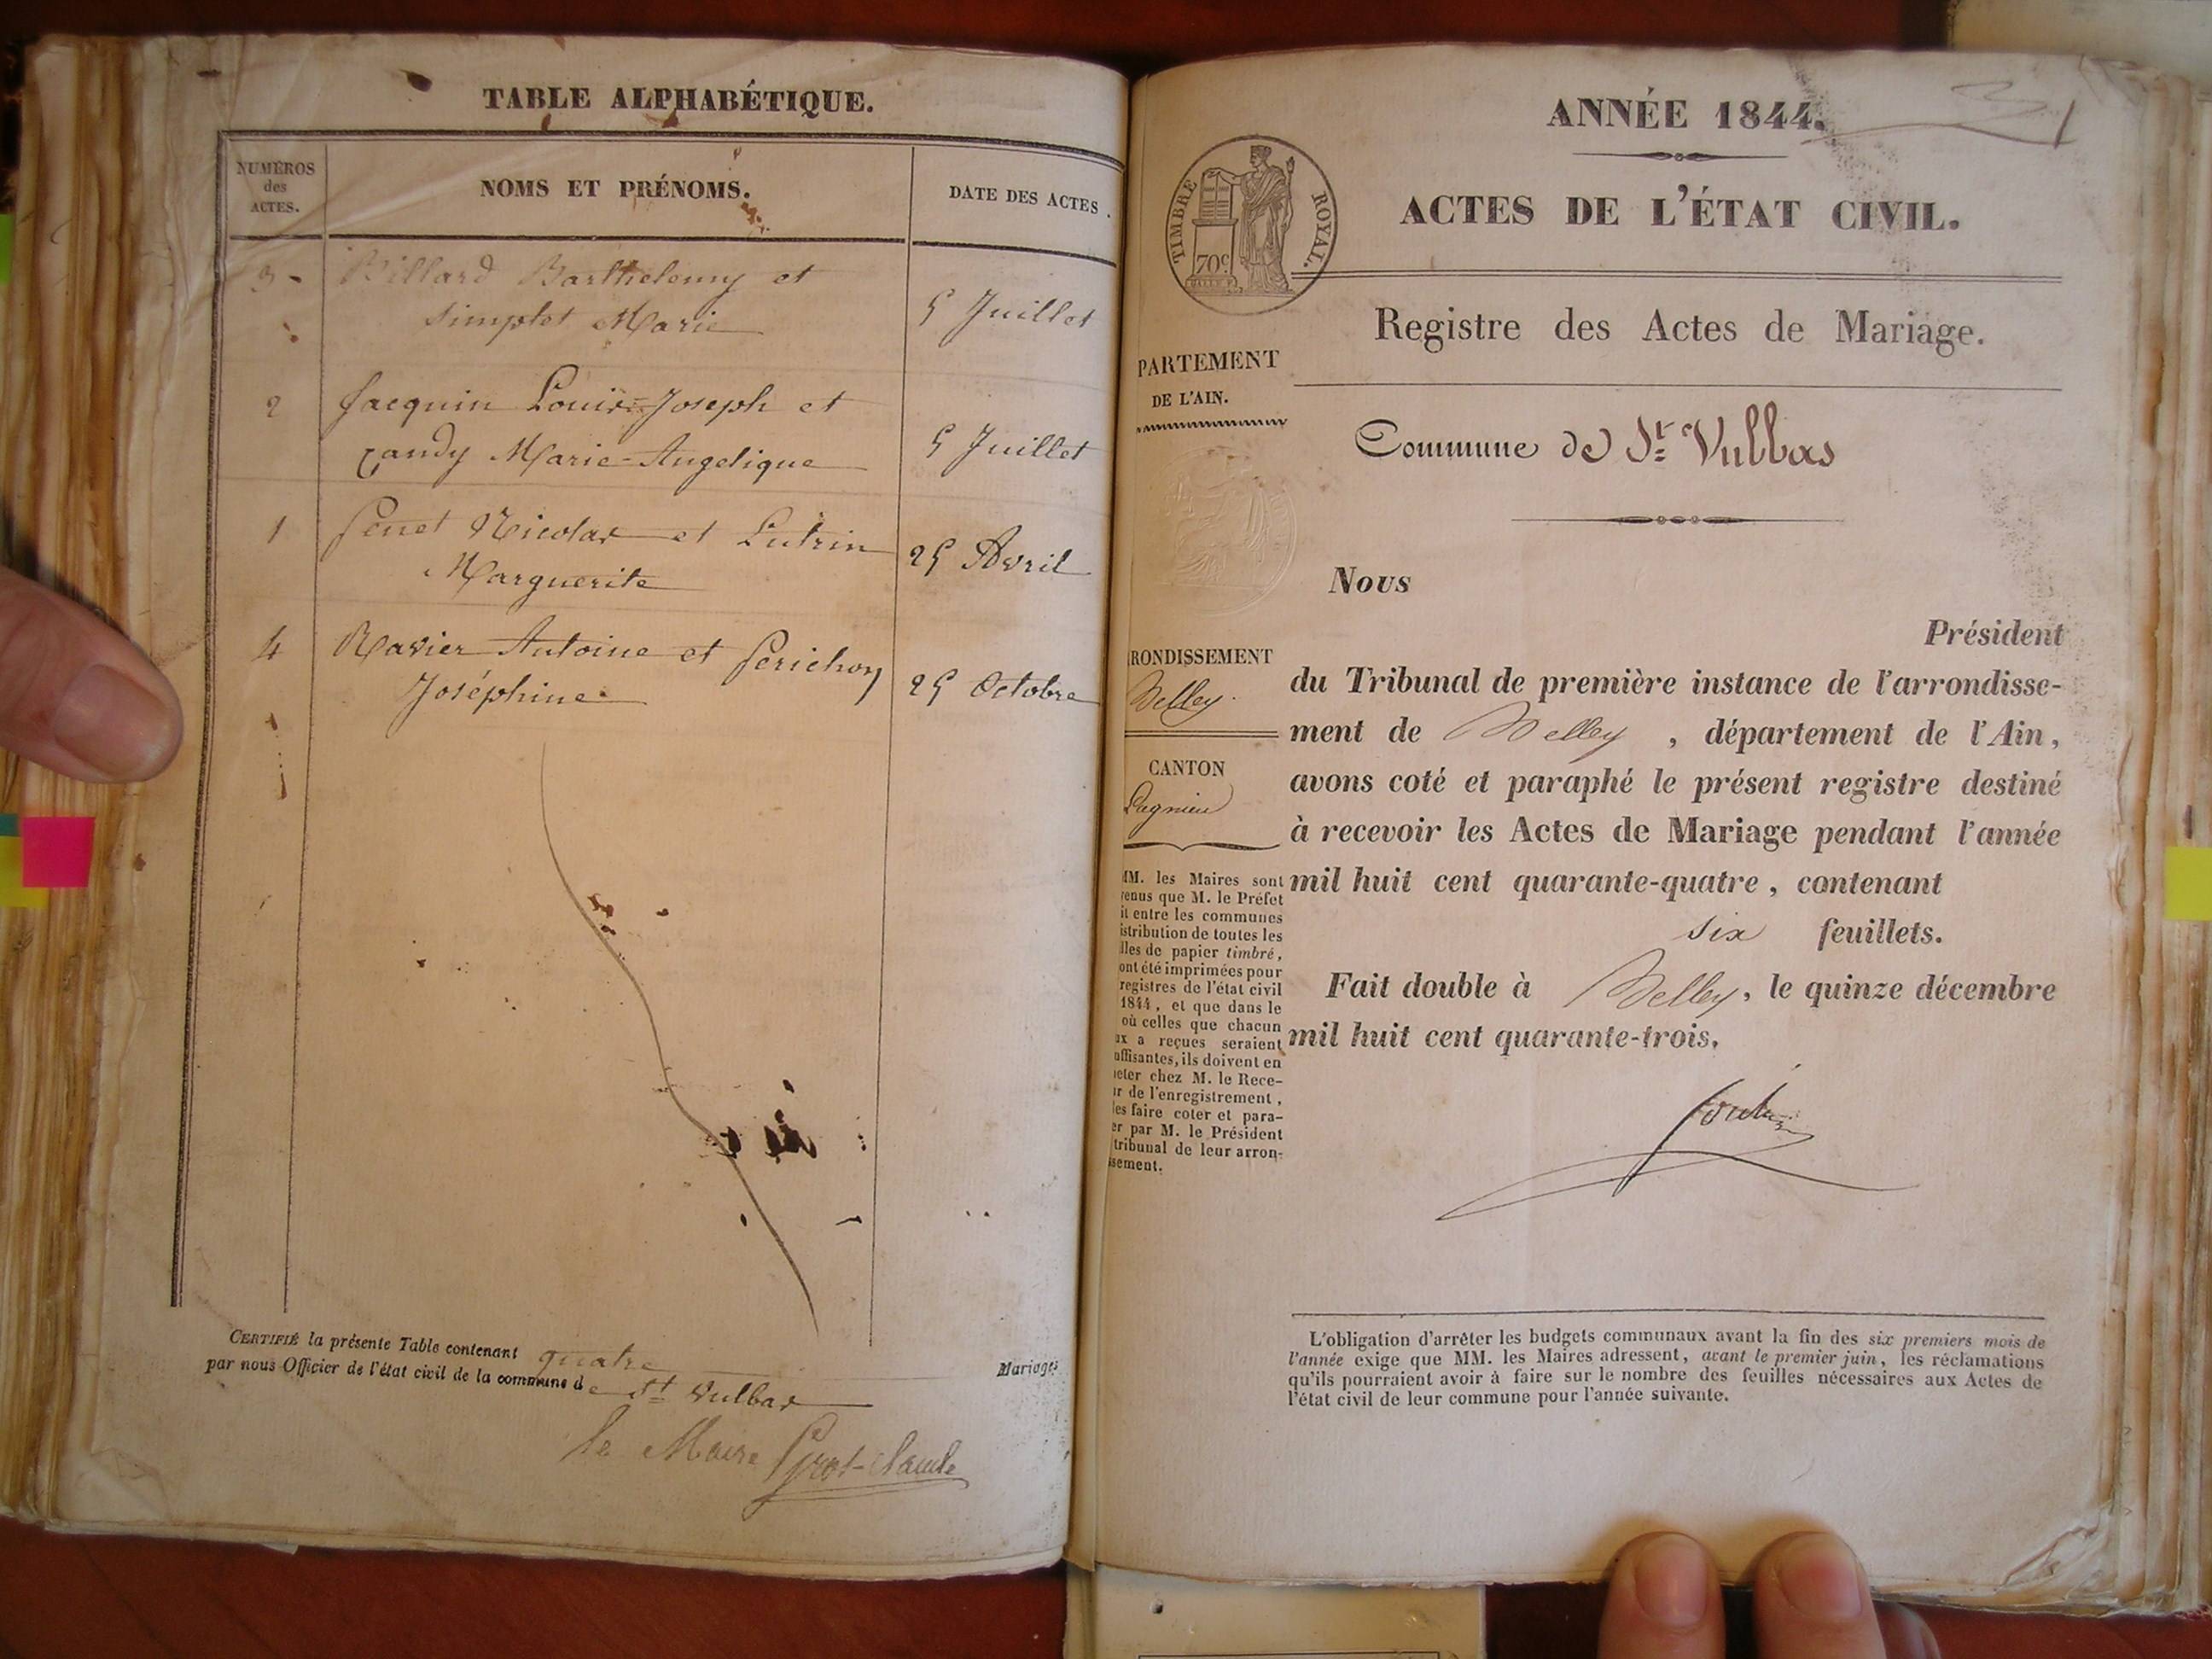 TABLE ALPHABÉTIQUE.
NUMÉROS
des
ACTES.
NOMS ET PRÉNOMS.
DATE DES ACTES.
3 Billard Barthelemy et
Simplet Marie
5 Juillet
2 Jacquin Louis-Joseph et
Candy Marie-Angelique
5 Juillet
1 Penet Nicolas et Lutrin
Marguerite
25 Avril
4 Ravier Antoine et Perichon
Joséphine
25 Octobre
CERTIFIÉ la présente Table contenant quatre Mariages
par nous Officier de l'état civil de la commune de St Vulbas
le Maire
ANNÉE 1844.
TIMBRE ROYAL.
70c
ACTES DE L'ÉTAT CIVIL.
Registre des Actes de Mariage.
PARTEMENT
DE L'AIN.
Commune de St Vulbas
RONDISSEMENT
Belley.
CANTON
Lagnieu
MM. les Maires sont
venus que M. le Préfet
it entre les communes
istribution de toutes les
lles de papier timbré,
ont été imprimées pour
registres de l'état civil
1844, et que dans le
où celles que chacun
ux a reçues seraient
uffisantes, ils doivent en
heter chez M. le Rece-
ur de l'enregistrement,
les faire coter et para-
er par M. le Président
tribunal de leur arron-
issement.
Nous
Président
du Tribunal de première instance de l'arrondisse-
ment de Belley, département de l'Ain,
avons coté et paraphé le présent registre destiné
à recevoir les Actes de Mariage pendant l'année
mil huit cent quarante-quatre, contenant
six feuillets.
Fait double à Belley, le quinze décembre
mil huit cent quarante-trois.
L'obligation d'arrêter les budgets communaux avant la fin des six premiers mois de
l'année exige que MM. les Maires adressent, avant le premier juin, les réclamations
qu'ils pourraient avoir à faire sur le nombre des feuilles nécessaires aux Actes de
l'état civil de leur commune pour l'année suivante.